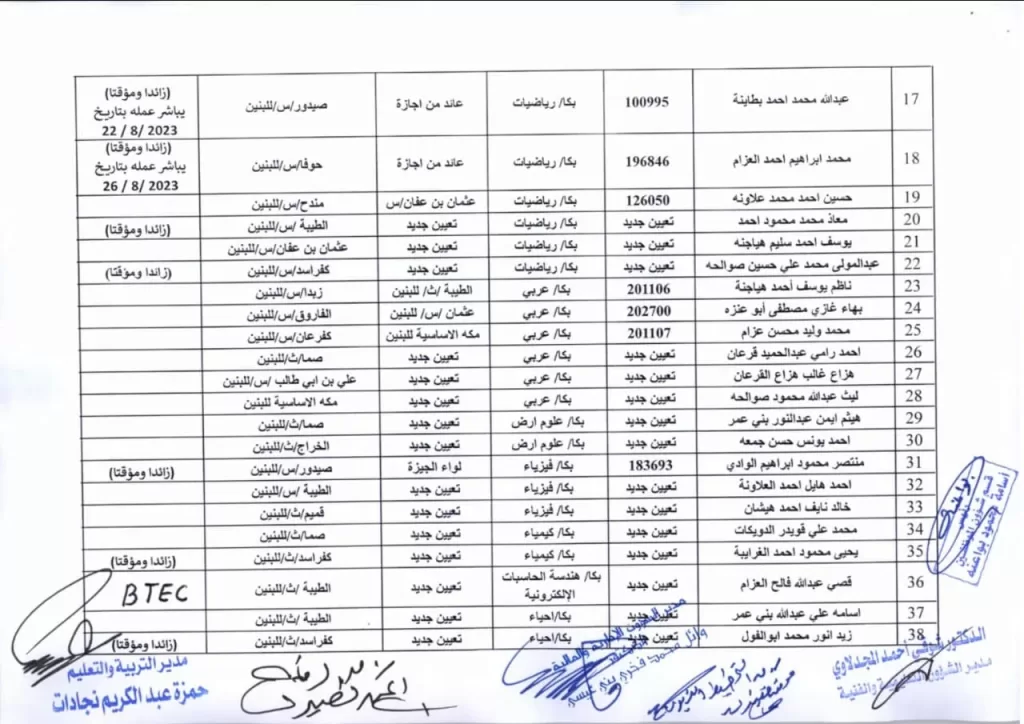 17 عبدالله محمد احمد بطاينة 100995 بكا/ رياضيات عائد من اجازة صيدور/س/للبنين (زائدا ومؤقتا) يباشر عمله بتاريخ 22 / 8/ 2023
18 محمد ابراهيم احمد العزام 196846 بكا/ رياضيات عائد من اجازة حوفا/س/للبنين (زائدا ومؤقتا) يباشر عمله بتاريخ 26 / 8/ 2023
19 حسين احمد محمد علاونه 126050 بكا/ رياضيات عثمان بن عفان/س مندح/س/للبنين
20 معاذ محمد محمود احمد تعيين جديد بكا/ رياضيات تعيين جديد الطيبة /س/للبنين (زائدا ومؤقتا)
21 يوسف احمد سليم هياجنه تعيين جديد بكا/ رياضيات تعيين جديد عثمان بن عفان/س/للبنين
22 عبدالمولى محمد علي حسين صوالحه تعيين جديد بكا/ رياضيات تعيين جديد كفراسد/س/للبنين (زائدا ومؤقتا)
23 ناظم يوسف أحمد هياجنة 201106 بكا/ عربي الطيبة /ث/ للبنين زبدا/س/للبنين
24 بهاء غازي مصطفى أبو عنزه 202700 بكا/ عربي عثمان /س/ للبنين الفاروق/س/للبنين
25 محمد وليد محسن عزام 201107 بكا/ عربي مكه الاساسية للبنين كفرعان/س/للبنين
26 احمد رامي عبدالحميد قرعان تعيين جديد بكا/ عربي تعيين جديد صما/ث/للبنين
27 هزاع غالب هزاع القرعان تعيين جديد بكا/ عربي تعيين جديد علي بن ابي طالب /س/للبنين
28 ليث عبدالله محمود صوالحه تعيين جديد بكا/ عربي تعيين جديد مكه الاساسية للبنين
29 هيثم ايمن عبدالنور بني عمر تعيين جديد بكا/ علوم ارض تعيين جديد صما/ث/للبنين
30 احمد يونس حسن جمعه تعيين جديد بكا/ علوم ارض تعيين جديد الخراج/ث/للبنين
31 منتصر محمود ابراهيم الوادي 183693 بكا/ فيزياء لواء الجيزة صيدور/س/للبنين (زائدا ومؤقتا)
32 احمد هايل احمد العلاونة تعيين جديد بكا/ فيزياء تعيين جديد الطيبة /س/للبنين
33 خالد نايف احمد هيشان تعيين جديد بكا/ فيزياء تعيين جديد قميم/ث/للبنين
34 محمد علي قويدر الدويكات تعيين جديد بكا/ كيمياء تعيين جديد صما/ث/للبنين
35 يحيى محمود احمد الغرايبة تعيين جديد بكا/ كيمياء تعيين جديد كفراسد/ث/للبنين (زائدا ومؤقتا)
36 قصي عبدالله فالح العزام تعيين جديد بكا/ هندسة الحاسبات الإلكترونية تعيين جديد الطيبة /ث/للبنين BTEC
37 اسامه علي عبدالله بني عمر تعيين جديد بكا/احياء تعيين جديد الطيبة /ث/للبنين
38 زيد انور محمد ابوالفول تعيين جديد بكا/احياء تعيين جديد كفراسد/ث/للبنين (زائدا ومؤقتا)
مدير التربية والتعليم
حمزة عبد الكريم نجادات
مدير الشؤون الادارية والمالية
الدكتور شوقي احمد المجدلاوي
مدير الشؤون التعليمية والفنية